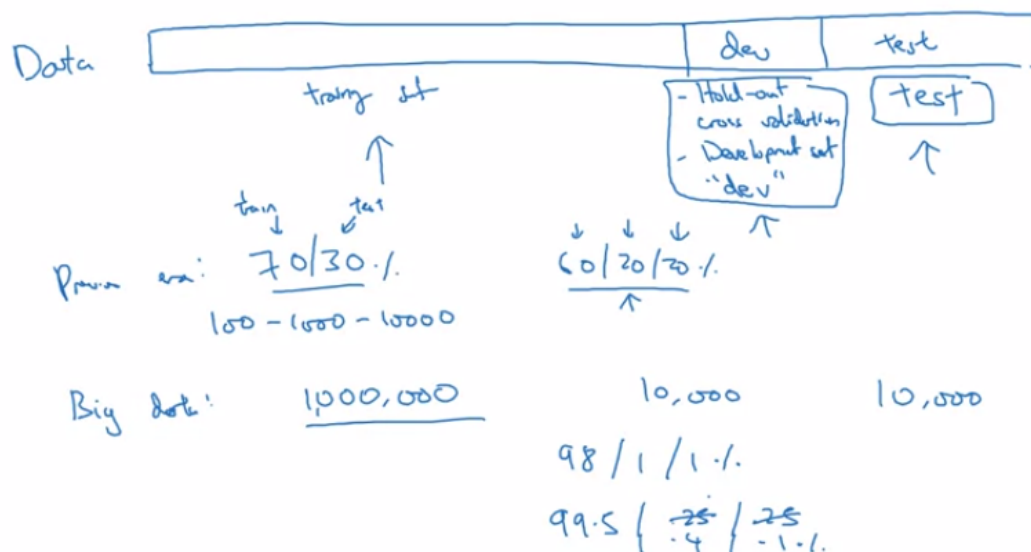 Data dev test
training set
- Hold-out
cross validation
- Development set
"dev"
test
train test
Previous era: 70/30 % 60/20/20 %
100 - 1000 - 10000
Big data: 1,000,000 10,000 10,000
98 / 1 / 1 %
99.5 / 25 / 25
.4 .1 %